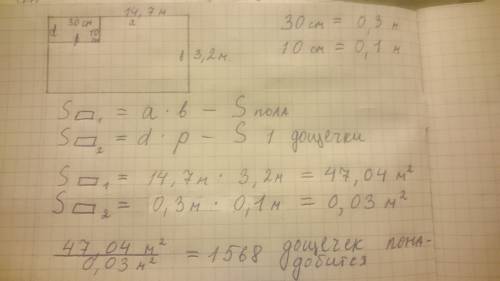 14,7 м
30 см = 0,3 м
30 см
a
d
10 см
p
10 см = 0,1 м
в 3,2 м
S▭₁ = a · в – S пола
S▭₂ = d · p – S 1 дощечки
S▭₁ = 14,7 м · 3,2 м = 47,04 м²
S▭₂ = 0,3 м · 0,1 м = 0,03 м²
47,04 м²
0,03 м²
= 1568 дощечек пона-
добится